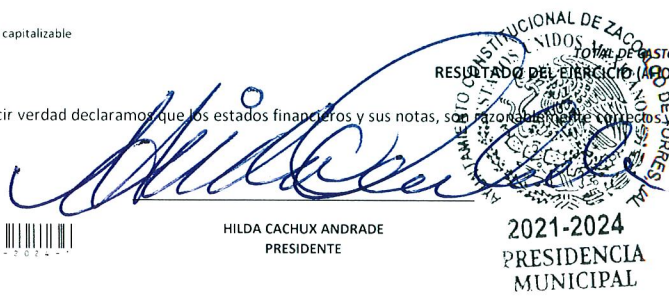 capitalizable
TOTAL DE GASTO
RESULTADO DEL EJERCICIO (AHO
cir verdad declaramos que los estados financieros y sus notas, son razonablemente correctos y
HILDA CACHUX ANDRADE
PRESIDENTE
AYUNTAMIENTO CONSTITUCIONAL DE ZACOALCO DE TORRES, JAL
ESTADOS UNIDOS MEXICANOS
2021-2024
PRESIDENCIA
MUNICIPAL